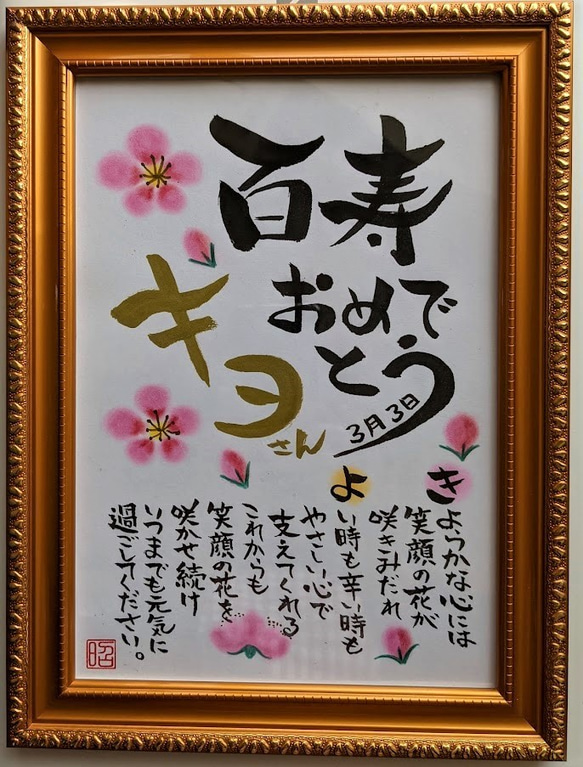 百寿
おめで
とう
3月3日
キヨ
さん
きよらかな心には
笑顔の花が
咲きみだれ
よい時も辛い時も
やさしい心で
支えてくれる
これからも
笑顔の花を
咲かせ続け
いつまでも元気に
過ごしてください。
昭